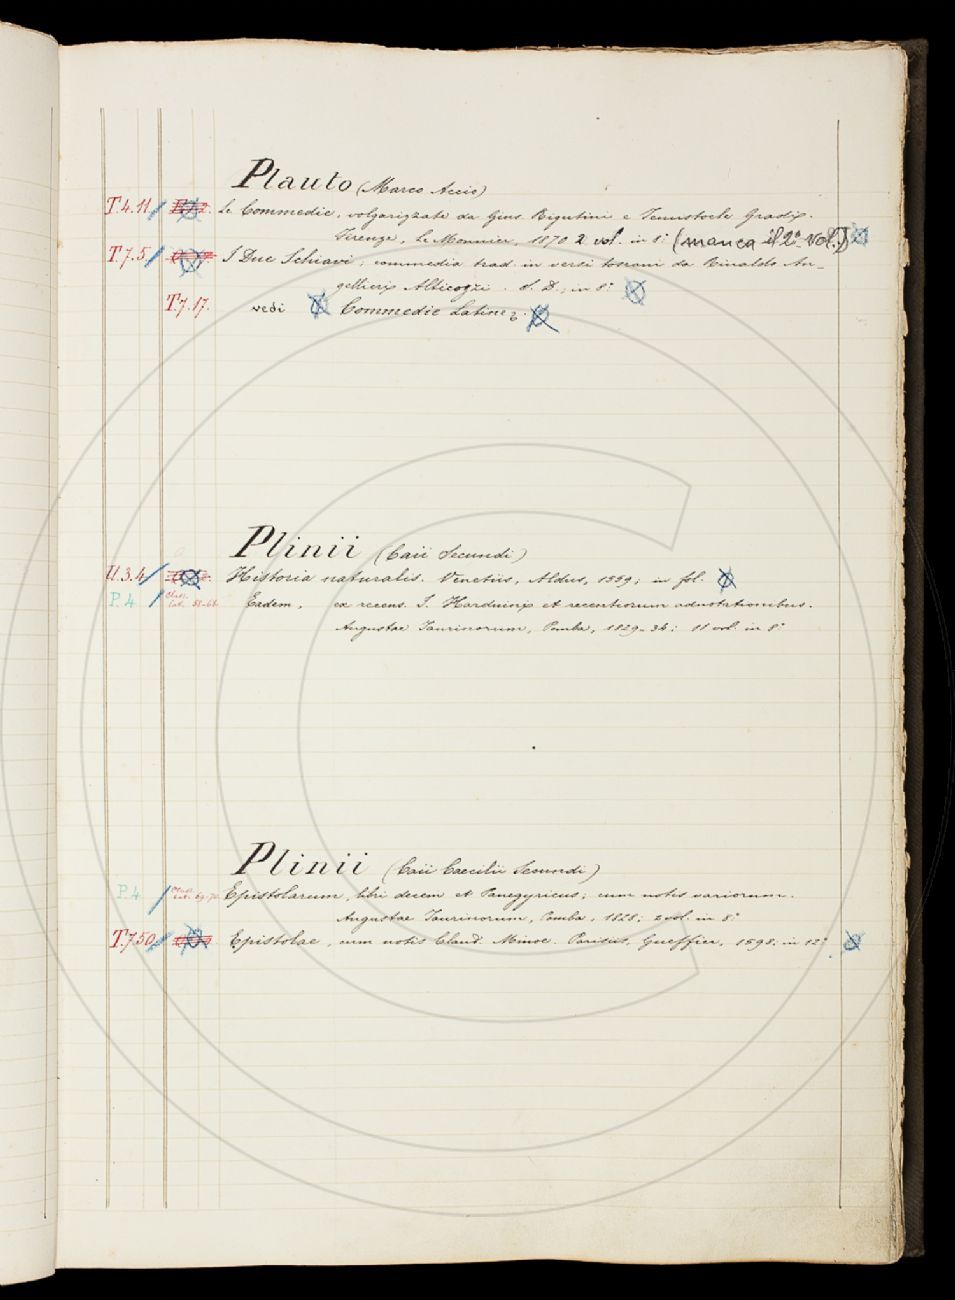 Plauto (Marco Accio)
T.4.11 Le Commedie, volgarizzate da Gius. Rigutini e Temistocle Gradi.
Firenze, Le Monnier, 1870 2 vol. in 8° (manca il 2° vol.)
T.7.5 I Due Schiavi; commedia trad. in versi toscani da Rinaldo An-
gellieri Alticozzi. S. D.; in 8°
T.7.17. vedi Commedie Latine
Plinii (Caii Secundi)
U.3.4 Historia naturalis. Venetiis, Aldus, 1559; in fol.
P.4 Class. Lat. Eadem, ex recens. I. Harduini et recentiorum adnotationibus.
Augustae Taurinorum, Pomba, 1829-34; 11 vol. in 8°
Plinii (Caii Caecilii Secundi)
P.4 Class. Lat. 69-70 Epistolarum, libri decem et Panegyricus; cum notis variorum.
Augustae Taurinorum, Pomba, 1828; 2 vol. in 8°
T.7.50 Epistolae, cum notis Claud. Minoe. Parisiis, Gueffier, 1598; in 12°